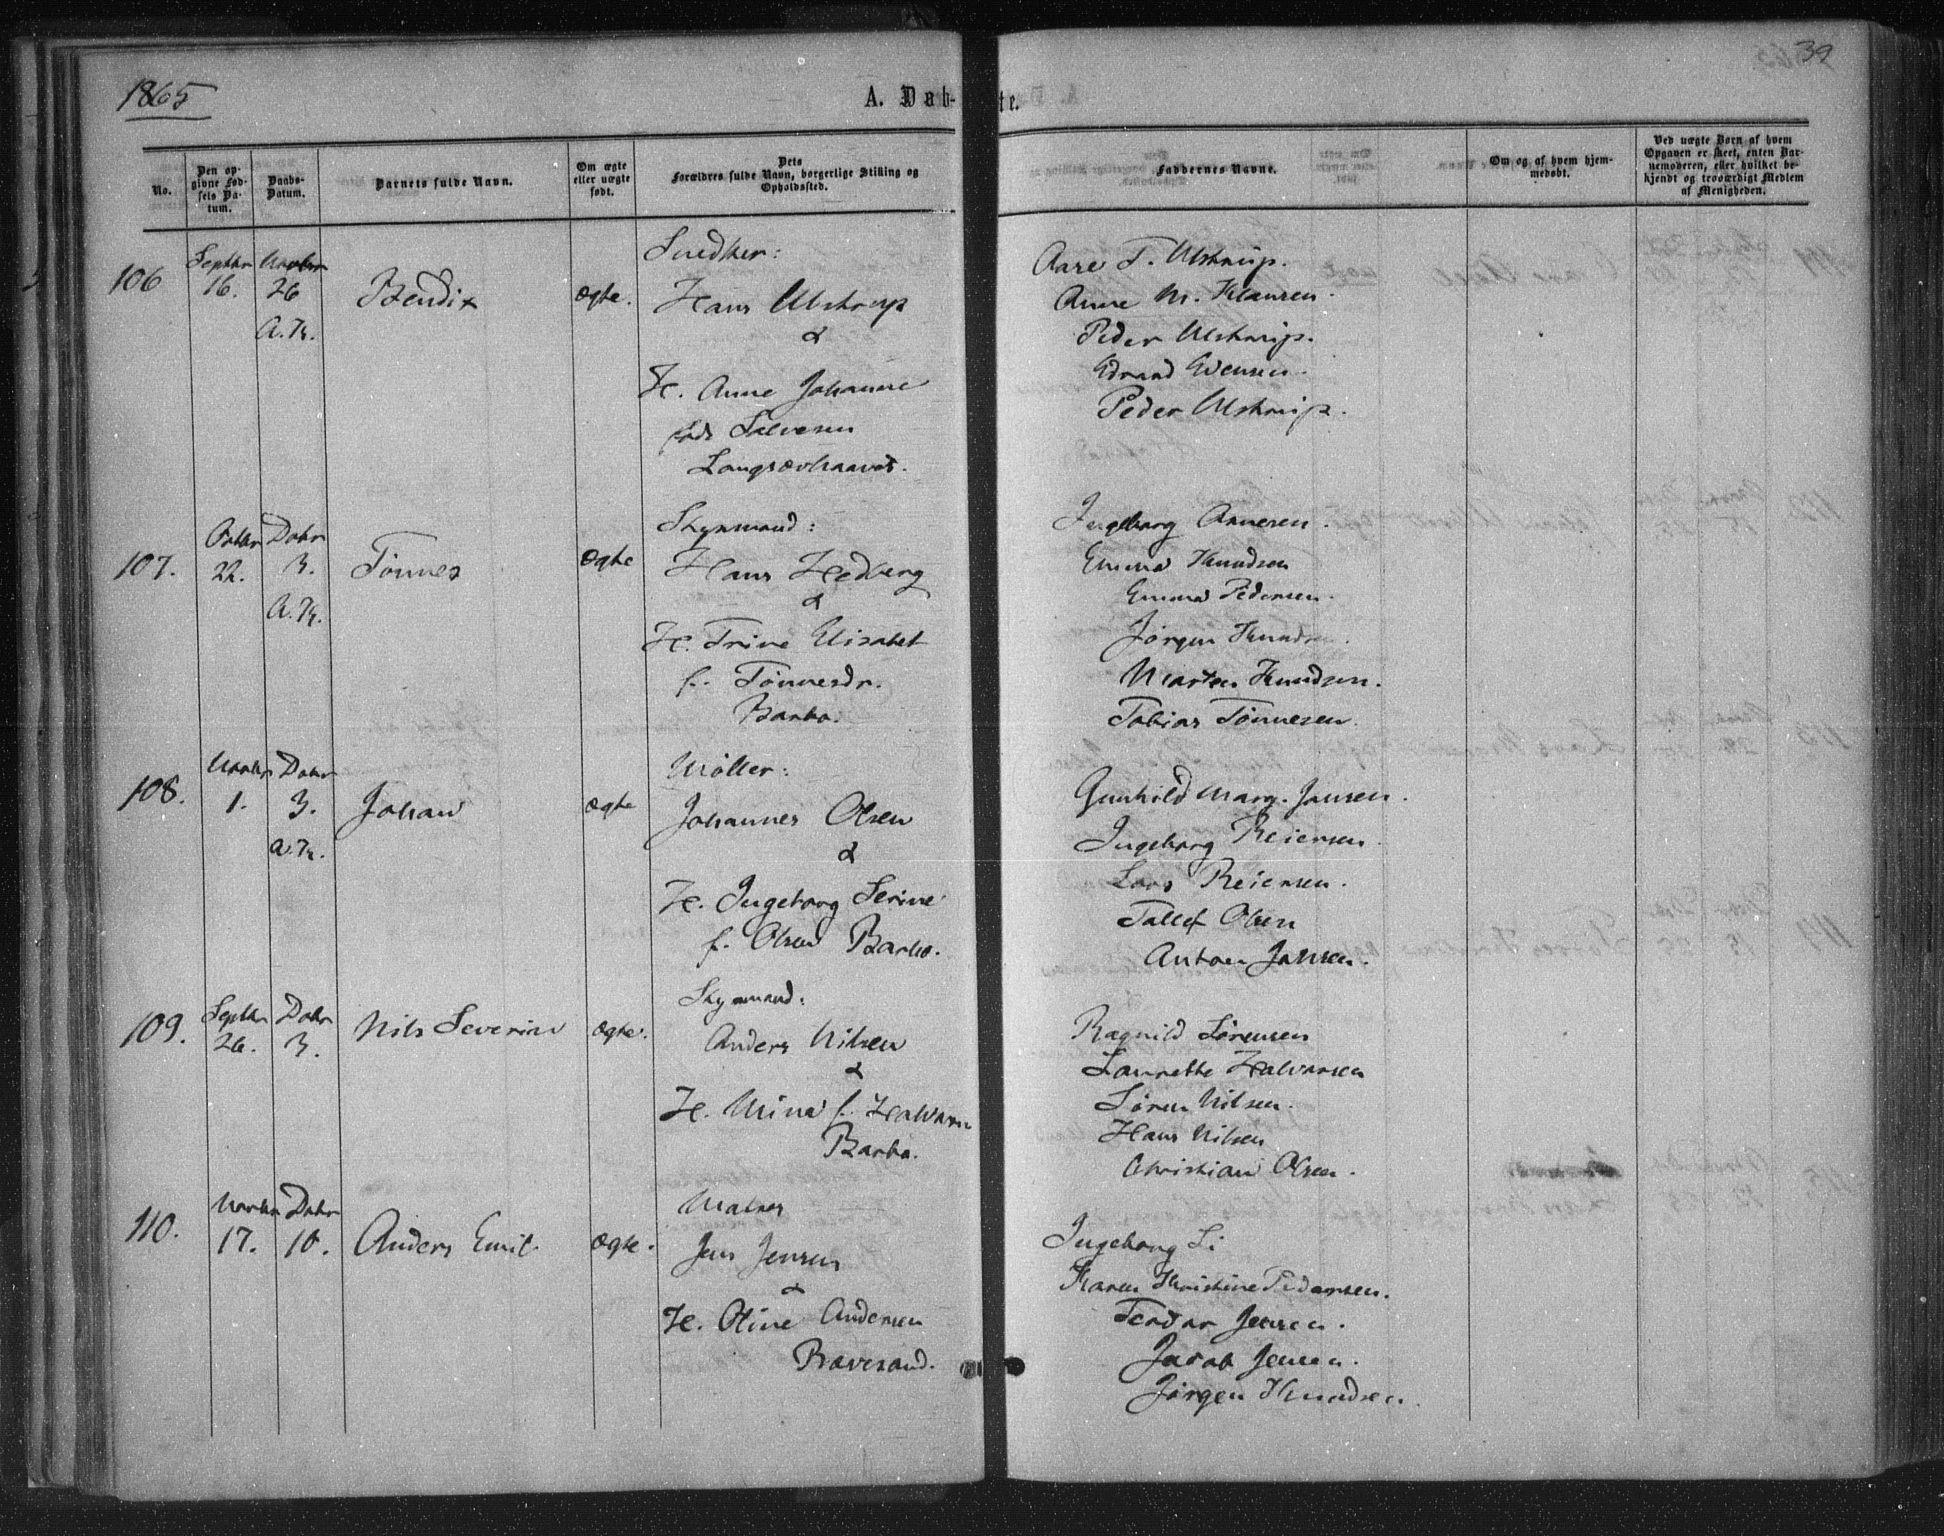 1865
A. Døb-
te.
39
No.
Den op-
givne Fød-
sels Da-
tum.
Daabs-
Datum.
Barnets fulde Navn.
Om ægte
eller uægte
født.
Dets
Forældres fulde Navn, borgerlige Stilling og
Opholdssted.
Faddernes Navne.
Om og af hvem hjem-
medøbt.
Ved uægte Børn af hvem
Opgaven er skeet, enten Bar-
nemoderen, eller hvilket be-
kjendt og troværdigt Medlem
af Menigheden.
106
Septbr
16.
Novbr
26
A.K.
Bendix
ægte.
Snedker:
Hans Ulstrup
&
H. Anne Johanne
føds Salvesen
Langsævhaavet.
Aase T. Ulstrup.
Anne M. Klausen.
Peder Ulstrup.
Edvard Evensen.
Peder Ulstrup.
107.
Octbr
22.
Dcbr
3.
A.K.
Tønnes
ægte
Skysmand:
Hans Hedberg
&
H. Trine Elisabet
f. Tønnesdr.
Barbo.
Ingeborg Annesen.
Emma Knudsen
Emma Pedersen.
Jørgen Knudsen.
Marten Knudsen.
Tobias Tønnesen.
108.
Novbr
1.
Dcbr
3.
A.K.
Johan
ægte
Møller:
Johannes Olsen
&
H. Ingeborg Serine
f. Olsen Barbo.
Gunhild Marg. Jansen.
Ingeborg Reiersen
Lars Reiersen.
Tallef Olsen
Anton Jansen.
109.
Septbr
26.
Dcbr
3.
Nils Severin
ægte.
Skysmand:
Anders Nilsen
&
H. Mina f. Halvorsen
Barbo.
Ragnild Sørensen
Laurette Halvorsen
Søren Nilsen.
Hans Nilsen
Christian Olsen.
110.
Novbr
17.
Dcbr
10.
Anders Emil
ægte.
Matros
Jens Jensen
&
H. Oline Andersen
Rævesand.
Ingeborg Li
Karen Kristine Pedersen.
Teodor Jensen.
Jacob Jensen.
Jørgen Knudsen.